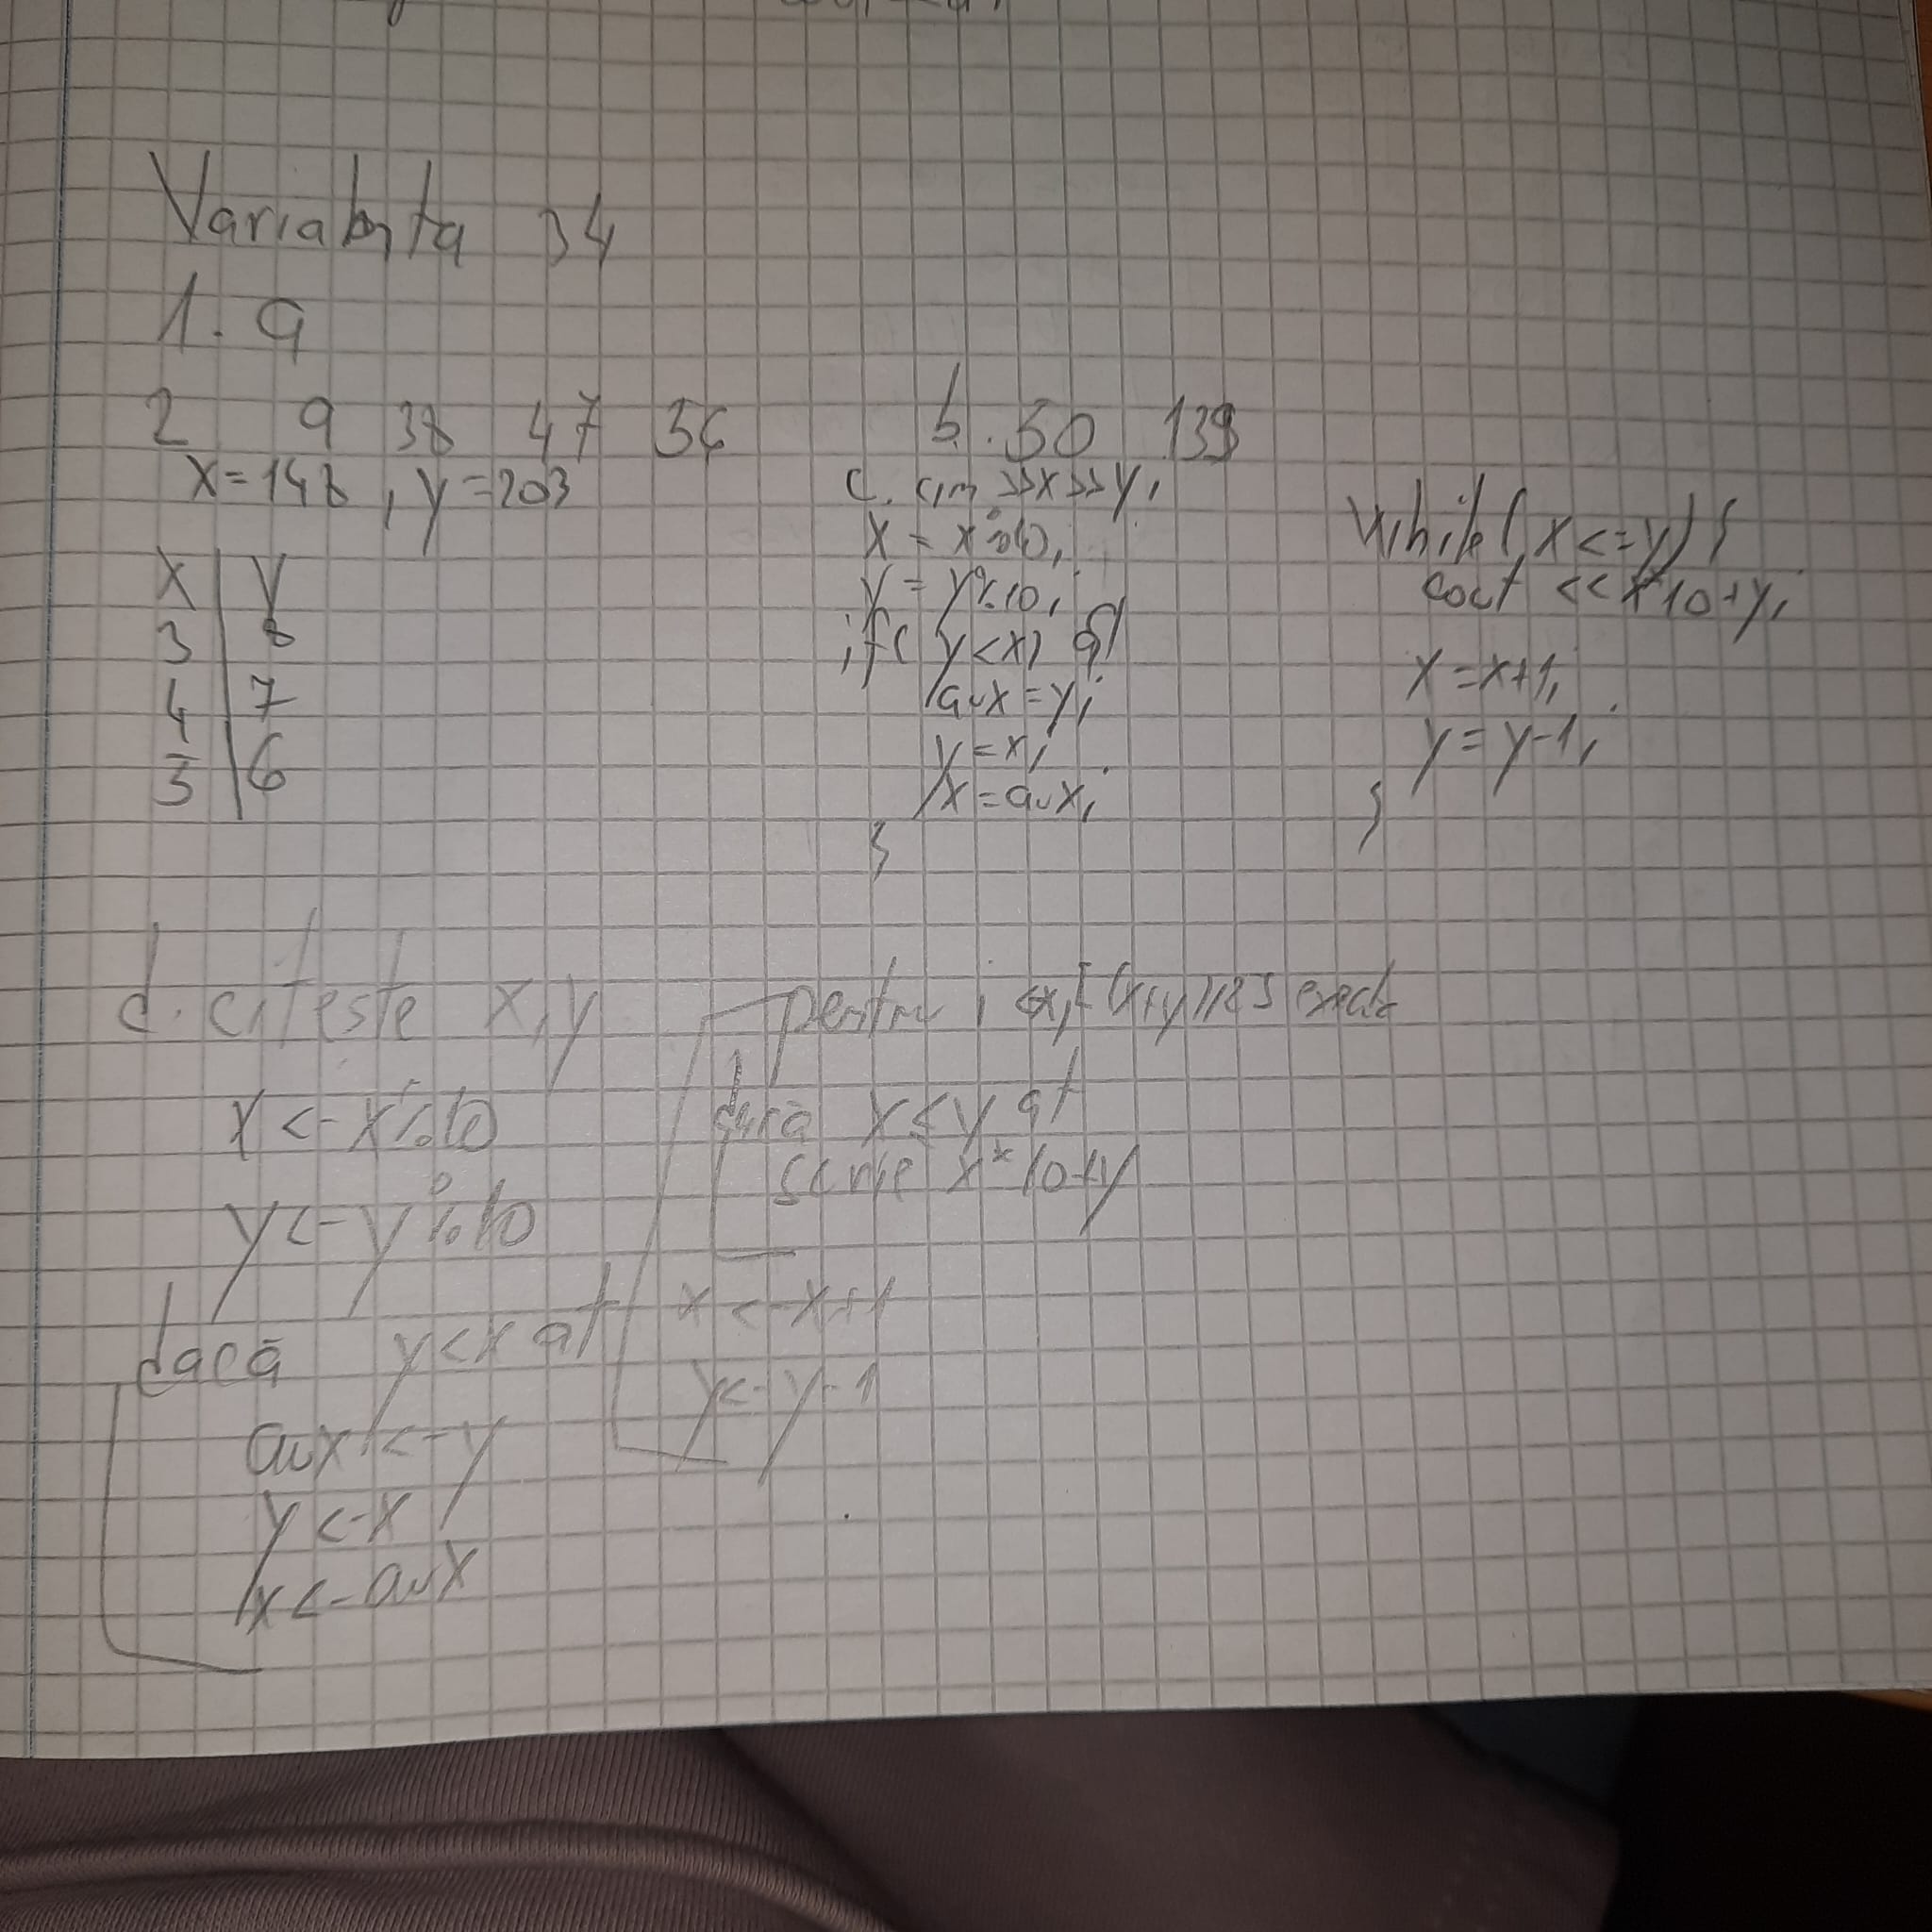 Varianta 34
1. a
2 9 38 47 56
x=148, y=203
x | y
3 | 8
4 | 7
5 | 6
b. 50 139
c. cin >>x>>y;
x = x%10;
y = y%10;
if( y<x) {
aux=y;
y=x;
x=aux;
}
while( x<=y) {
cout << x*10+y;
x=x+1;
y=y-1;
}
d. citeste x,y
x<-x%10
y<-y%10
dacă y<x at
aux<-y
y<-x
x<-aux
pentru i<-x,[(x+y)/2]
dacă x≤y at
scrie x*10+y
x<-x+1
y<-y-1